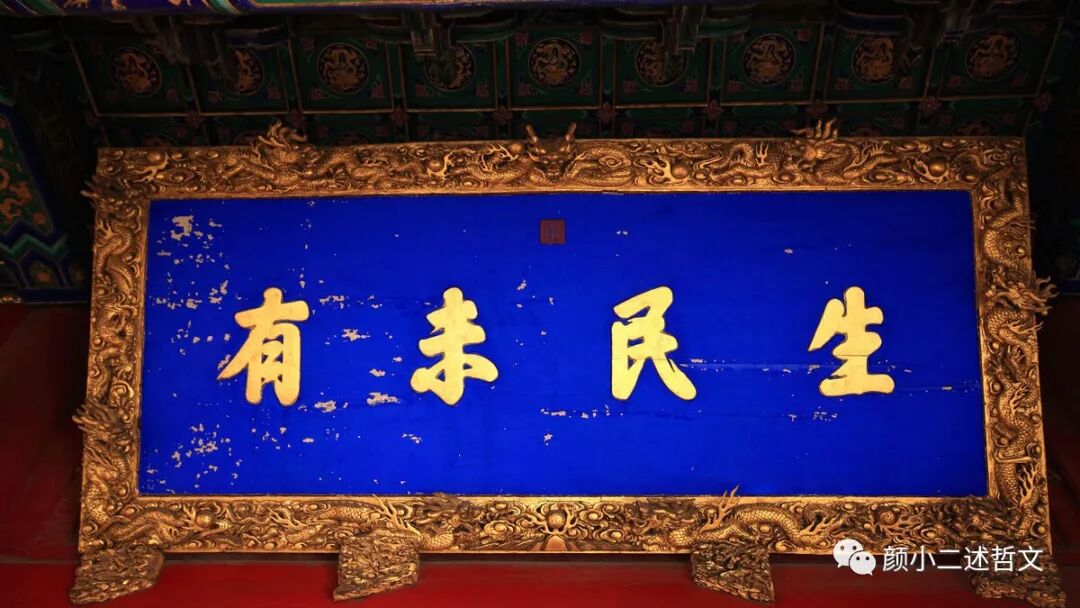 生民未有
颜小二述哲文